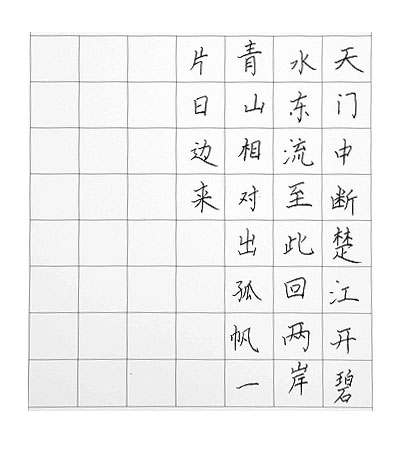 天门中断楚江开碧
水东流至此回两岸
青山相对出孤帆一
片日边来